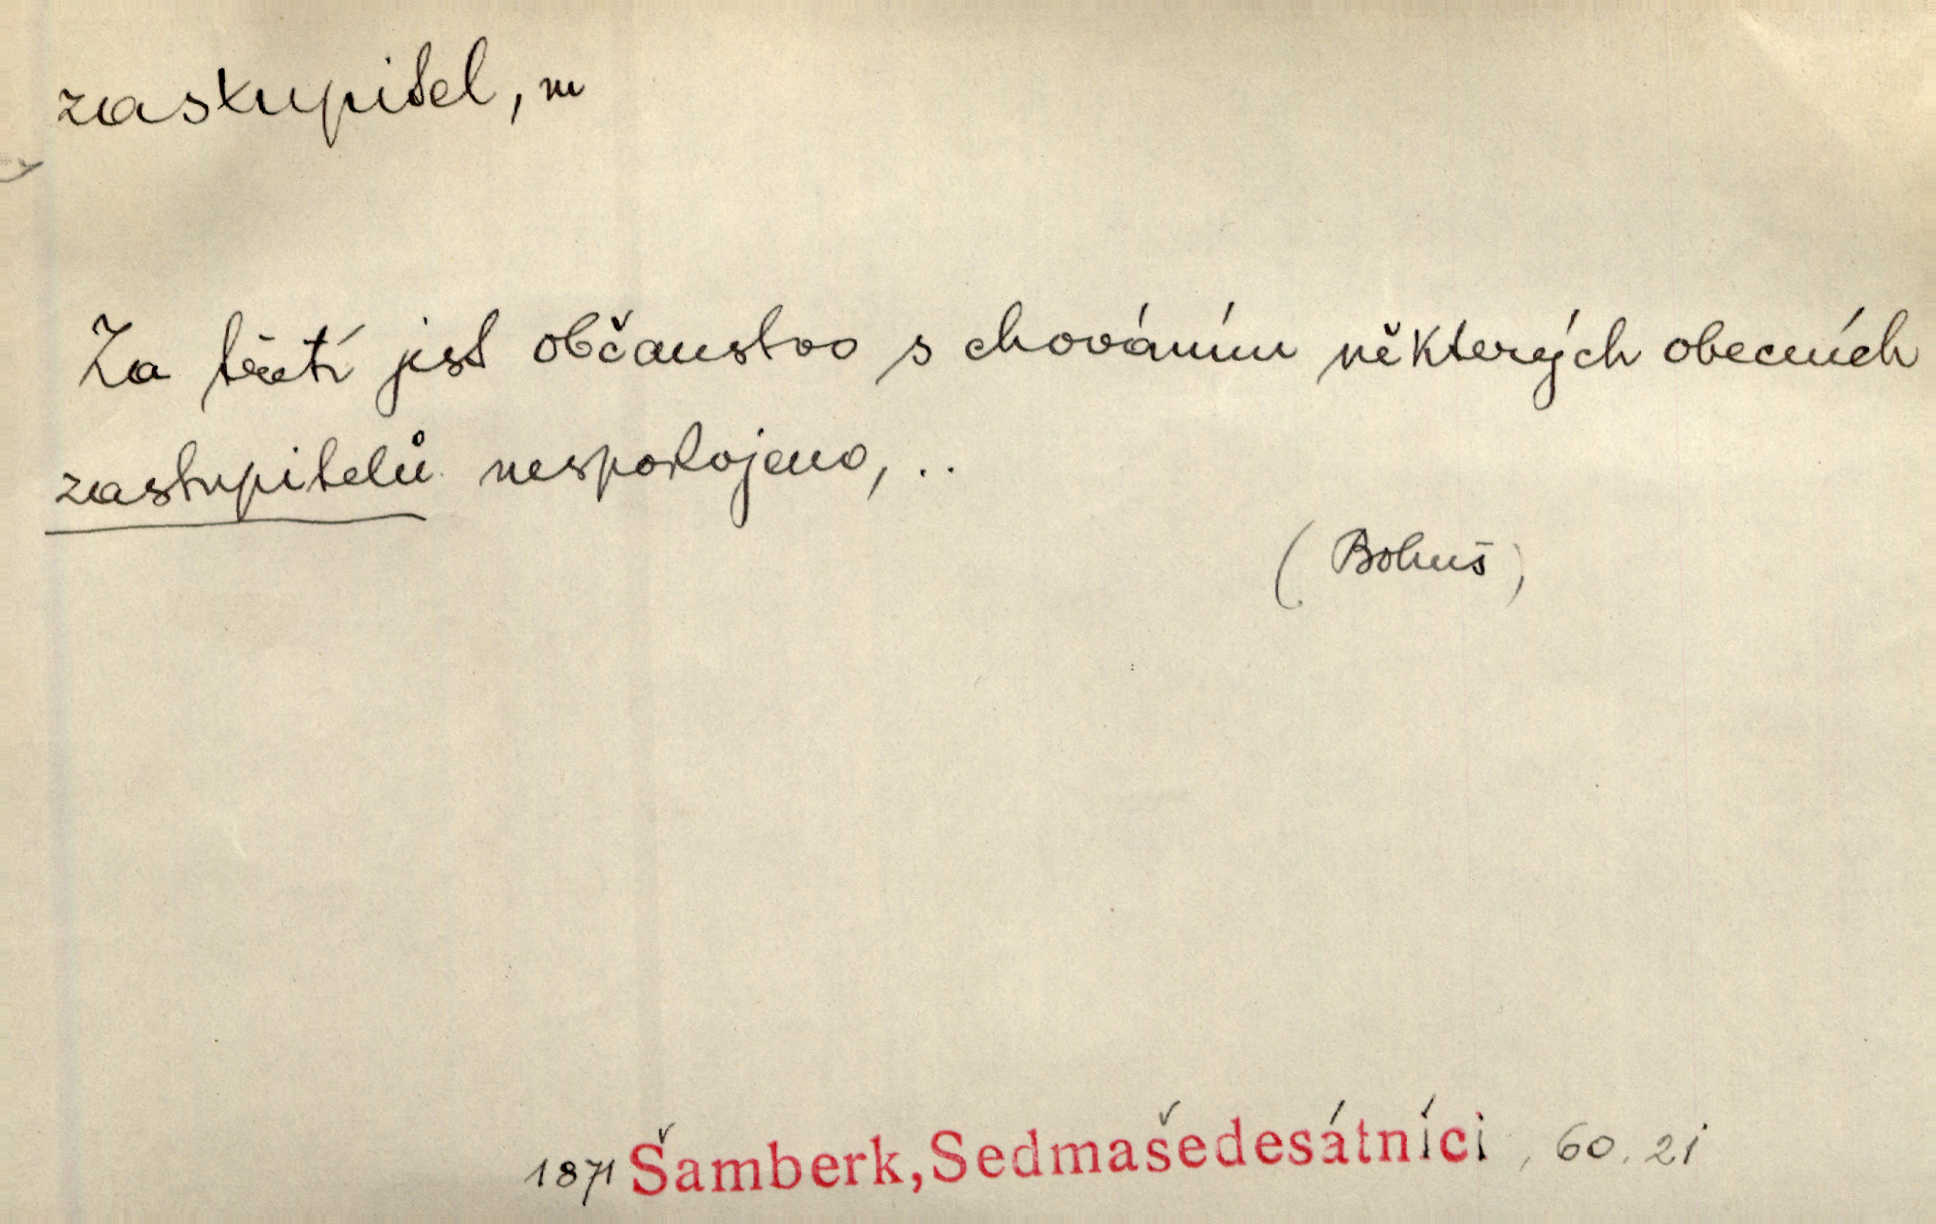 zastupitel, m
Za třetí jest občanstvo s chováním některých obecních
zastupitelů nespokojeno, ..
(Bohuš)
1871 Šamberk, Sedmašedesátníci, 60. 21